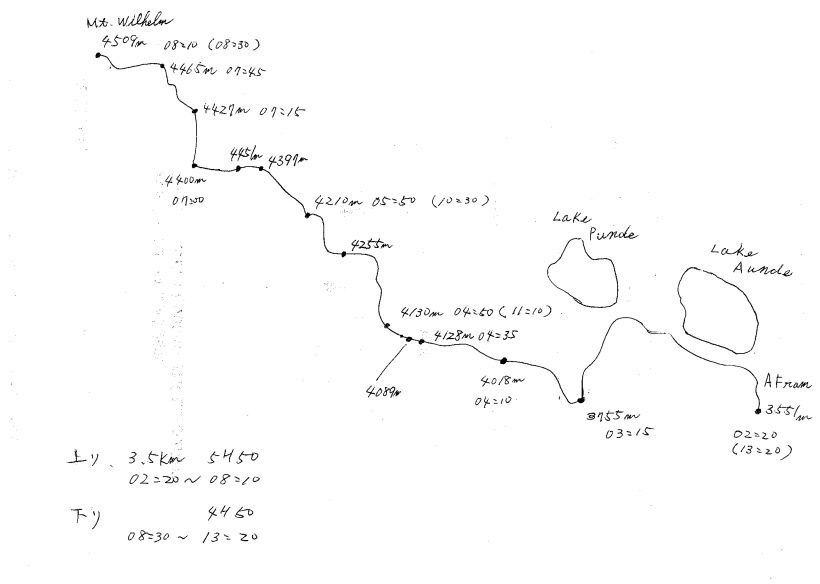 Mt. Wilhelm
4509m 08=10 (08=30)
4465m 07=45
4427m 07=15
4451m 4397m
4400m
07=00
4210m 05=50 (10=30)
Lake
Punde
Lake
Aunde
4255m
4130m 04=50 (11=10)
4128m 04=35
4089m
4018m
04=10
3755m
03=15
A Fram
3551m
02=20
(13=20)
上り、 3.5km 5H50
02=20～08=10
下り 4H50
08=30～13=20